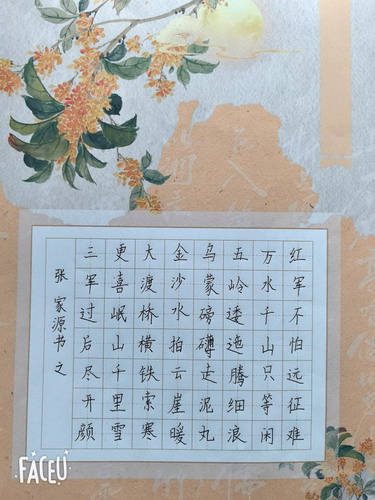 红军不怕远征难
万水千山只等闲
五岭逶迤腾细浪
乌蒙磅礴走泥丸
金沙水拍云崖暖
大渡桥横铁索寒
更喜岷山千里雪
三军过后尽开颜
张家源书之
FACEU